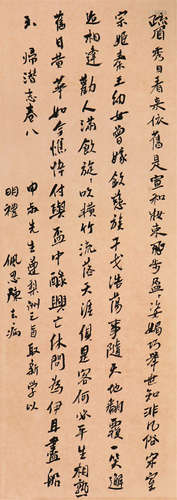 疏眉秀目看來依舊是宣和妝束飛步盈盈姿媚巧舉世知非凡俗宋室
宗姬秦王幼女曾嫁欽慈族干戈浩蕩事隨天地翻覆一笑邂
逅相逢勸人滿飲旋々吹橫竹流落天涯俱是客何必平生相熟
舊日榮華如今憔悴付與盃中醁興亡休問為伊且盡船
玉 歸潛志卷八
申叔先生遵梨洲之旨取新學以
明禮 佩忍陳去病